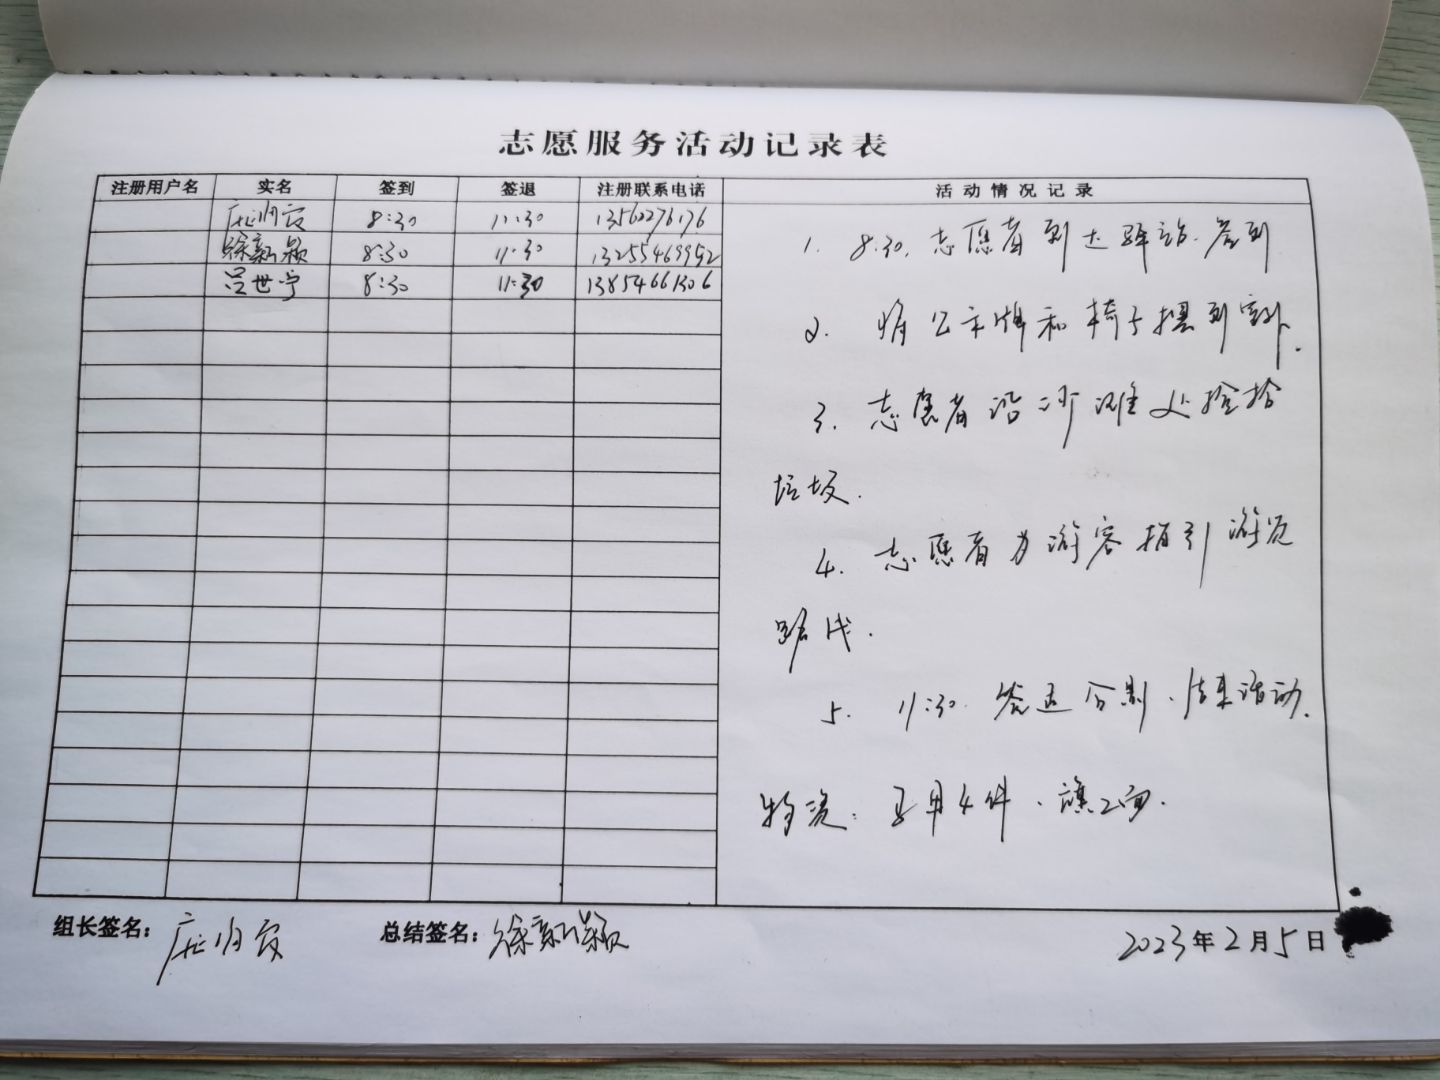 志愿服务活动记录表
注册用户名 实名 签到 签退 注册联系电话 活动情况记录
8:30 11:30 13562276176
徐新颖 8:30 11:30 13255469952
吕世宁 8:30 11:30 13854661306
1. 8:30. 志愿者到达驿站.签到
2. 将公示牌和椅子摆到室外.
3. 志愿者沿沙滩处捡拾
垃圾.
4. 志愿者为游客指引游览
路线.
5. 11:30. 签退合影、结束活动.
物资: 马甲4件、旗2面.
组长签名: 总结签名: 徐新颖 2023年2月5日